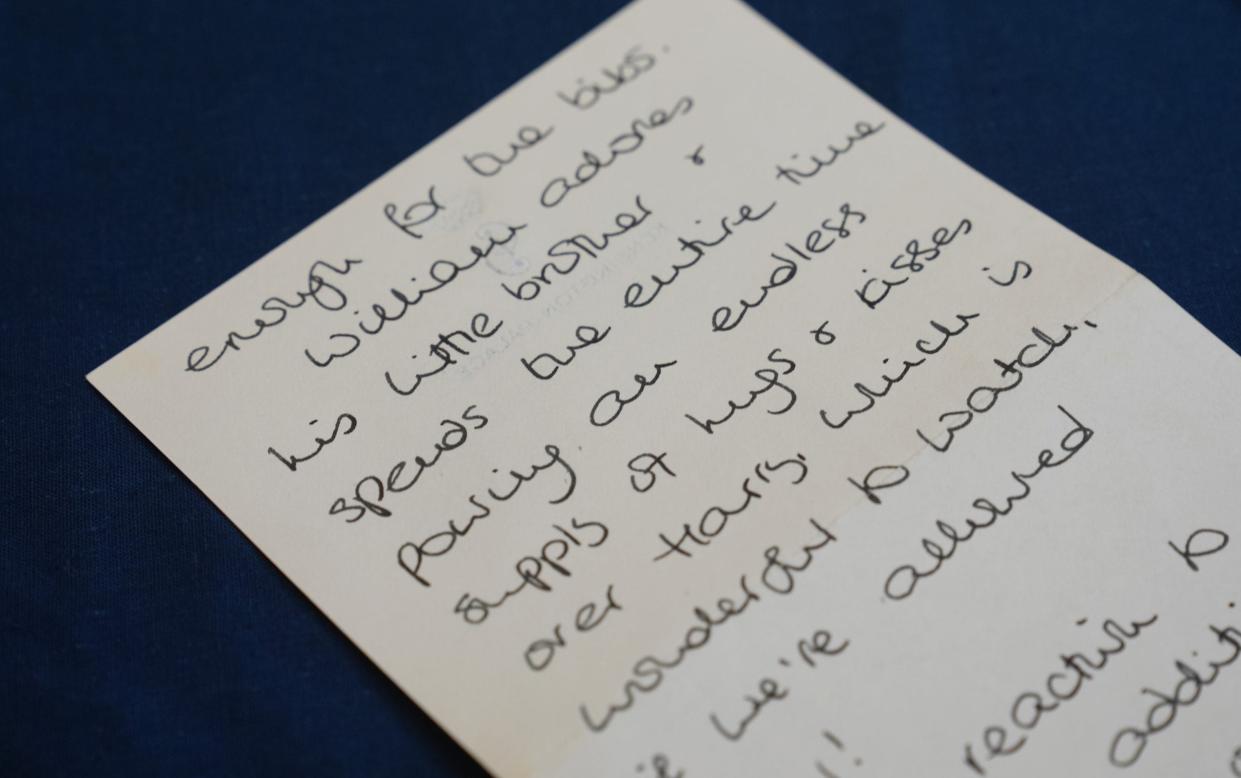 enough for the bibs.
William adores
his little brother &
spends the entire time
pouring an endless
supply of hugs & kisses
over Harry, which is
wonderful to watch,
we're allowed
!
reaction to
KENSINGTON PALACE